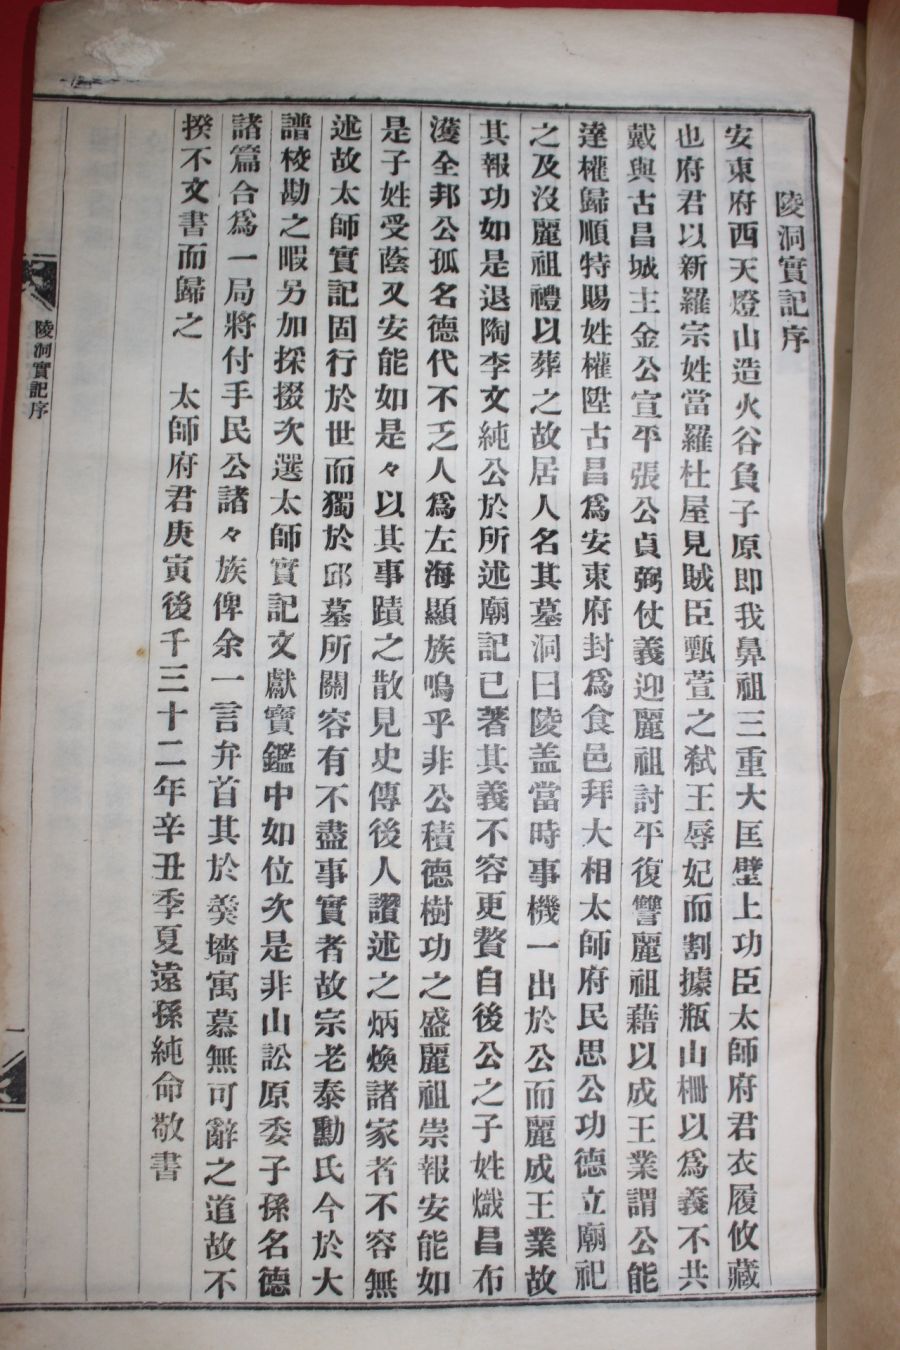 陵洞實記序
安東府西天燈山造火谷負子原即我鼻祖三重大匡壁上功臣太師府君衣履攸藏
也府君以新羅宗姓當羅杜屋見賊臣甄萱之弑王辱妃而割據瓶山柵以爲義不共
戴與古昌城主金公宣平張公貞弼仗義迎麗祖討平復讐麗祖藉以成王業謂公能
達權歸順特賜姓權陞古昌爲安東府封爲食邑拜大相太師府民思公功德立廟祀
之及沒麗祖禮以葬之故居人名其墓洞曰陵盖當時事機一出於公而麗成王業故
其報功如是退陶李文純公於所述廟記已著其義不容更贅自後公之子姓熾昌布
濩全邦公孤名德代不乏人爲左海顯族嗚乎非公積德樹功之盛麗祖崇報安能如
是子姓受蔭又安能如是々以其事蹟之散見史傳後人讚述之炳煥諸家者不容無
述故太師實記固行於世而獨於邱墓所關容有不盡事實者故宗老泰勳氏今於大
譜校勘之暇另加採掇次選太師實記文獻寶鑑中如位次是非山訟原委子孫名德
諸篇合爲一局將付手民公諸々族俾余一言弁首其於羹墻寓慕無可辭之道故不
揆不文書而歸之 太師府君庚寅後千三十二年辛丑季夏遠孫純命敬書
陵洞實記序
一